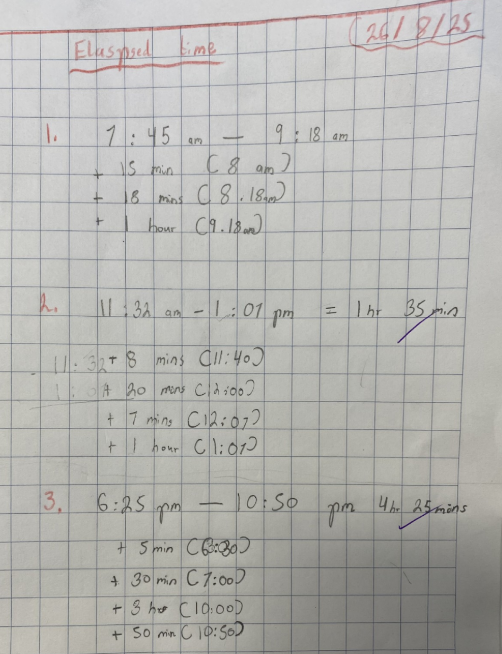 (26/8/25
Eluspsed time
1. 7:45 am — 9:18 am
+ 15 min (8 am)
+ 18 mins (8.18am)
+ 1 hour (9.18am)
2. 11:32 am - 1:07 pm = 1 hr 35 min
11:32 + 8 mins (11:40)
+ 20 mins (12:00)
+ 7 mins (12:07)
+ 1 hour (1:07)
3. 6:25 pm — 10:50 pm 4 hr 25 mins
+ 5 min (6:30)
+ 30 min (7:00)
+ 3 hr (10:00)
+ 50 min (10:50)